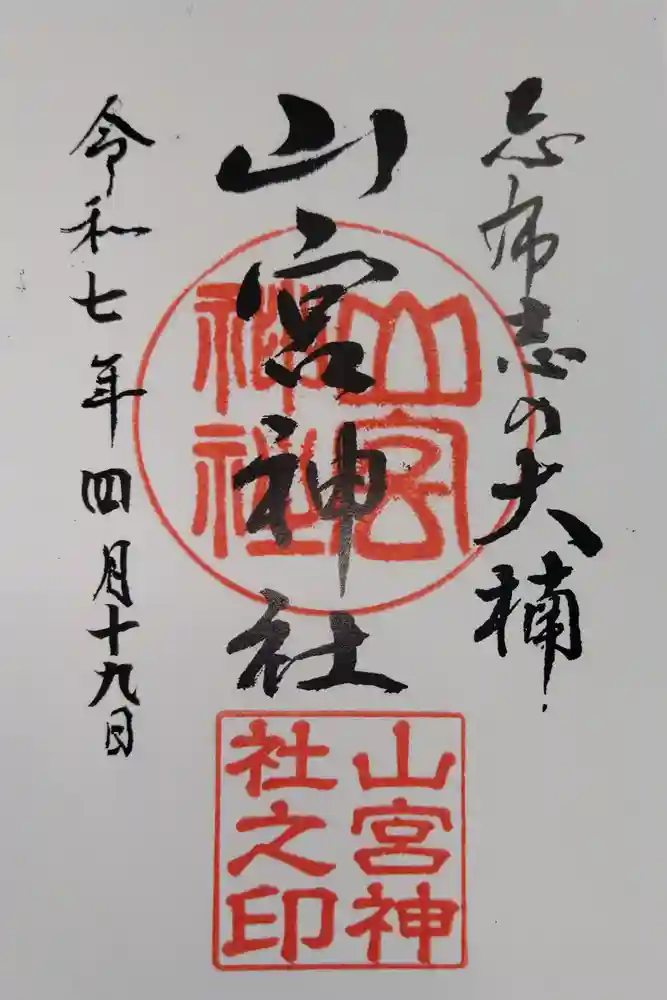 志布志の大楠
山宮神社
山宮
神社
山宮神
社之印
令和七年四月十九日